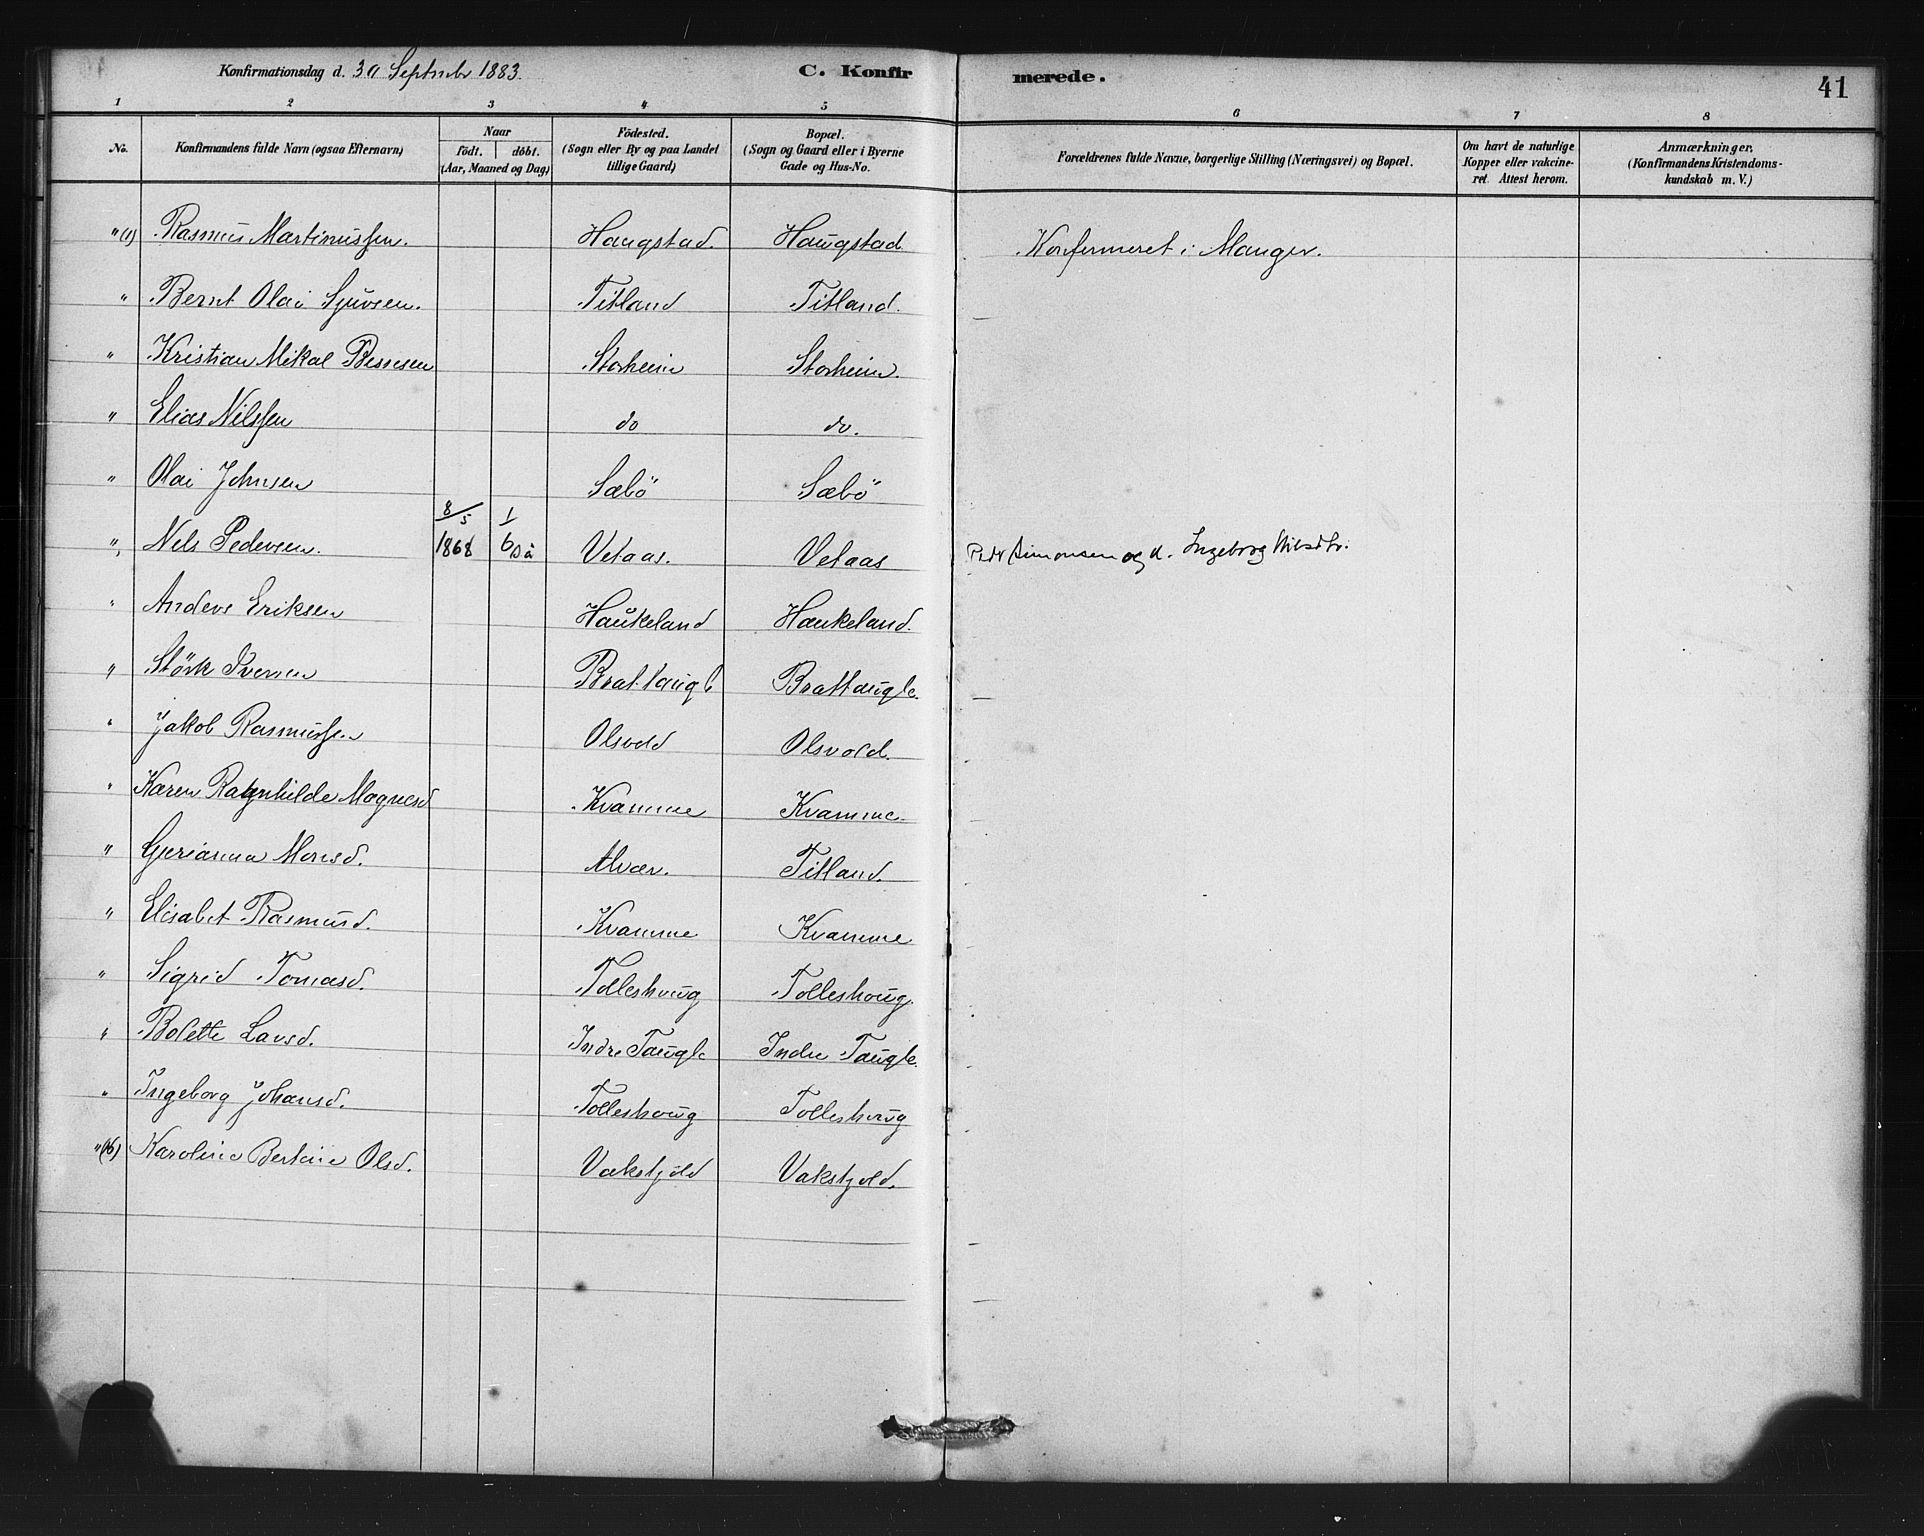 Konfirmationsdag d. 30 September 1883. C. Konfirmerede. 41
1 2 3 4 5 6 7 8
No. Konfirmandens fulde Navn (ogsaa Efternavn) Naar födt. döbt. (Aar, Maaned og Dag) Födested. (Sogn eller By og paa Landet tillige Gaard) Bopæl. (Sogn og Gaard eller i Byerne Gade og Hus-No. Forældrenes fulde Navne, borgerlige Stilling (Næringsvei) og Bopæl. Om havt de naturlige Kopper eller vakcineret. Attest herom. Anmærkninger. (Konfirmandens Kristendomskundskab m. V.)
" (1) Rasmus Martinussen. Haugstad. Haugstad Konfermeret i Manger.
" Bernt Olai Sjursen. Titland Titland.
" Kristian Mikal Bessesen Storheim Storheim.
" Elias Nilssen do do.
" Olai Johnsen Sæbö Sæbö
" Nels Pedersen. 8/5 1868 1/6 s å Vetaas. Vetaas Peder Simonsen og d. Ingeborg Nilsdtr.
" Anders Eriksen Haukeland Haukeland.
" Störk Iversen Brattaugle Brattaugle.
" Jakob Rasmussen Olsvold Olsvold.
" Karen Ragnhilde Magnesd Kvamme Kvamme.
" Gjerianna Monsd. Alvær. Titland.
" Elisabet Rasmusd. Kvamme Kvamme
" Sigrid Tomasd. Tolleshoug Tolleshoug.
" Bolette Larsd. Indre Taugle Indre Taugle.
" Ingeborg Johansd. Tolleshoug Tolleshoug
" (16) Karoline Bertine Olsd. Vakskjold Vakskjold.